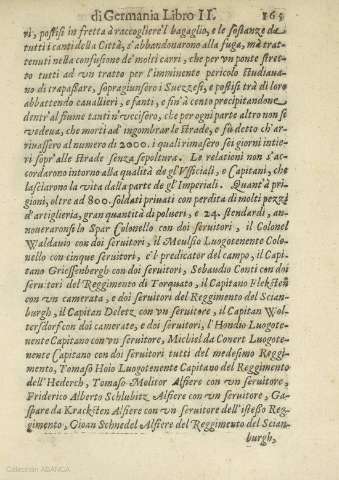 di Germania Libro II. 165
vi, postisi in fretta à raccogliere'l bagaglio, e le sostanze da
tutti i canti della Città, s'abbandonarono alla fuga, mà trat-
tenuti nella confusione de'molti carri, che per vn ponte stret-
to tutti ad vn tratto per l'imminente pericolo studiaua-
no di trapassare, sopragiunsero i Suezzesi, e postisi trà di loro
abbattendo cauallieri, e fanti, e fin'à cento precipitandone
dentr'al fiume tanti n'vccisero, che per ogni parte altro non se
vedeua, che morti ad'ingombrar le strade, e fù detto ch'ar-
riuassero al numero di 2000. i quali rimasero sei giorni intie-
ri sopr'alle strade senza sepoltura. Le relationi non s'ac-
cordarono intorno alla qualità de gl'Vfficiali, e Capitani, che
lasciarono la vita dalla parte de gl'Imperiali. Quant'à pri-
gioni, oltre ad 800. soldati priuati con perdita di molti pezzi
d'artiglieria, gran quantità di polueri, e 24. stendardi, an-
noueraronsi lo Spar Colonello con doi seruitori, il Colonel
Waldauio con doi seruitori, il Meulsio Luogotenente Colo-
nello con cinque seruitori, e'l predicator del campo, il Capi-
tano Griessenbergh con doi seruitori, Sebaudio Conti con doi
seruitori del Regimento di Torquato, il Capitano Flekstein
con vn camerata, e doi seruitori del Reggimento del Scian-
burgh, il Capitan Doletz con vn seruitore, il Capitan Wol-
tersdorf con doi camerate, e doi seruitori, l'Hondio Luogote-
nente Capitano con vn seruitore, Michiel da Conert Luogote-
nente Capitano con doi seruitori tutti del medesimo Reggi-
mento, Tomaso Hoio Luogotenente Capitano del Reggimento
dell'Hederch, Tomaso Melitor Alfiere con vn seruitore,
Friderico Alberto Schlubitz Alfiere con vn seruitore, Ga-
spare da Kracksten Alfiere con vn seruitore dell'istesso Reg-
gimento, Gioan Schnedel Alfiere del Reggimento del Scian-
burgh,
Colección ABANCA